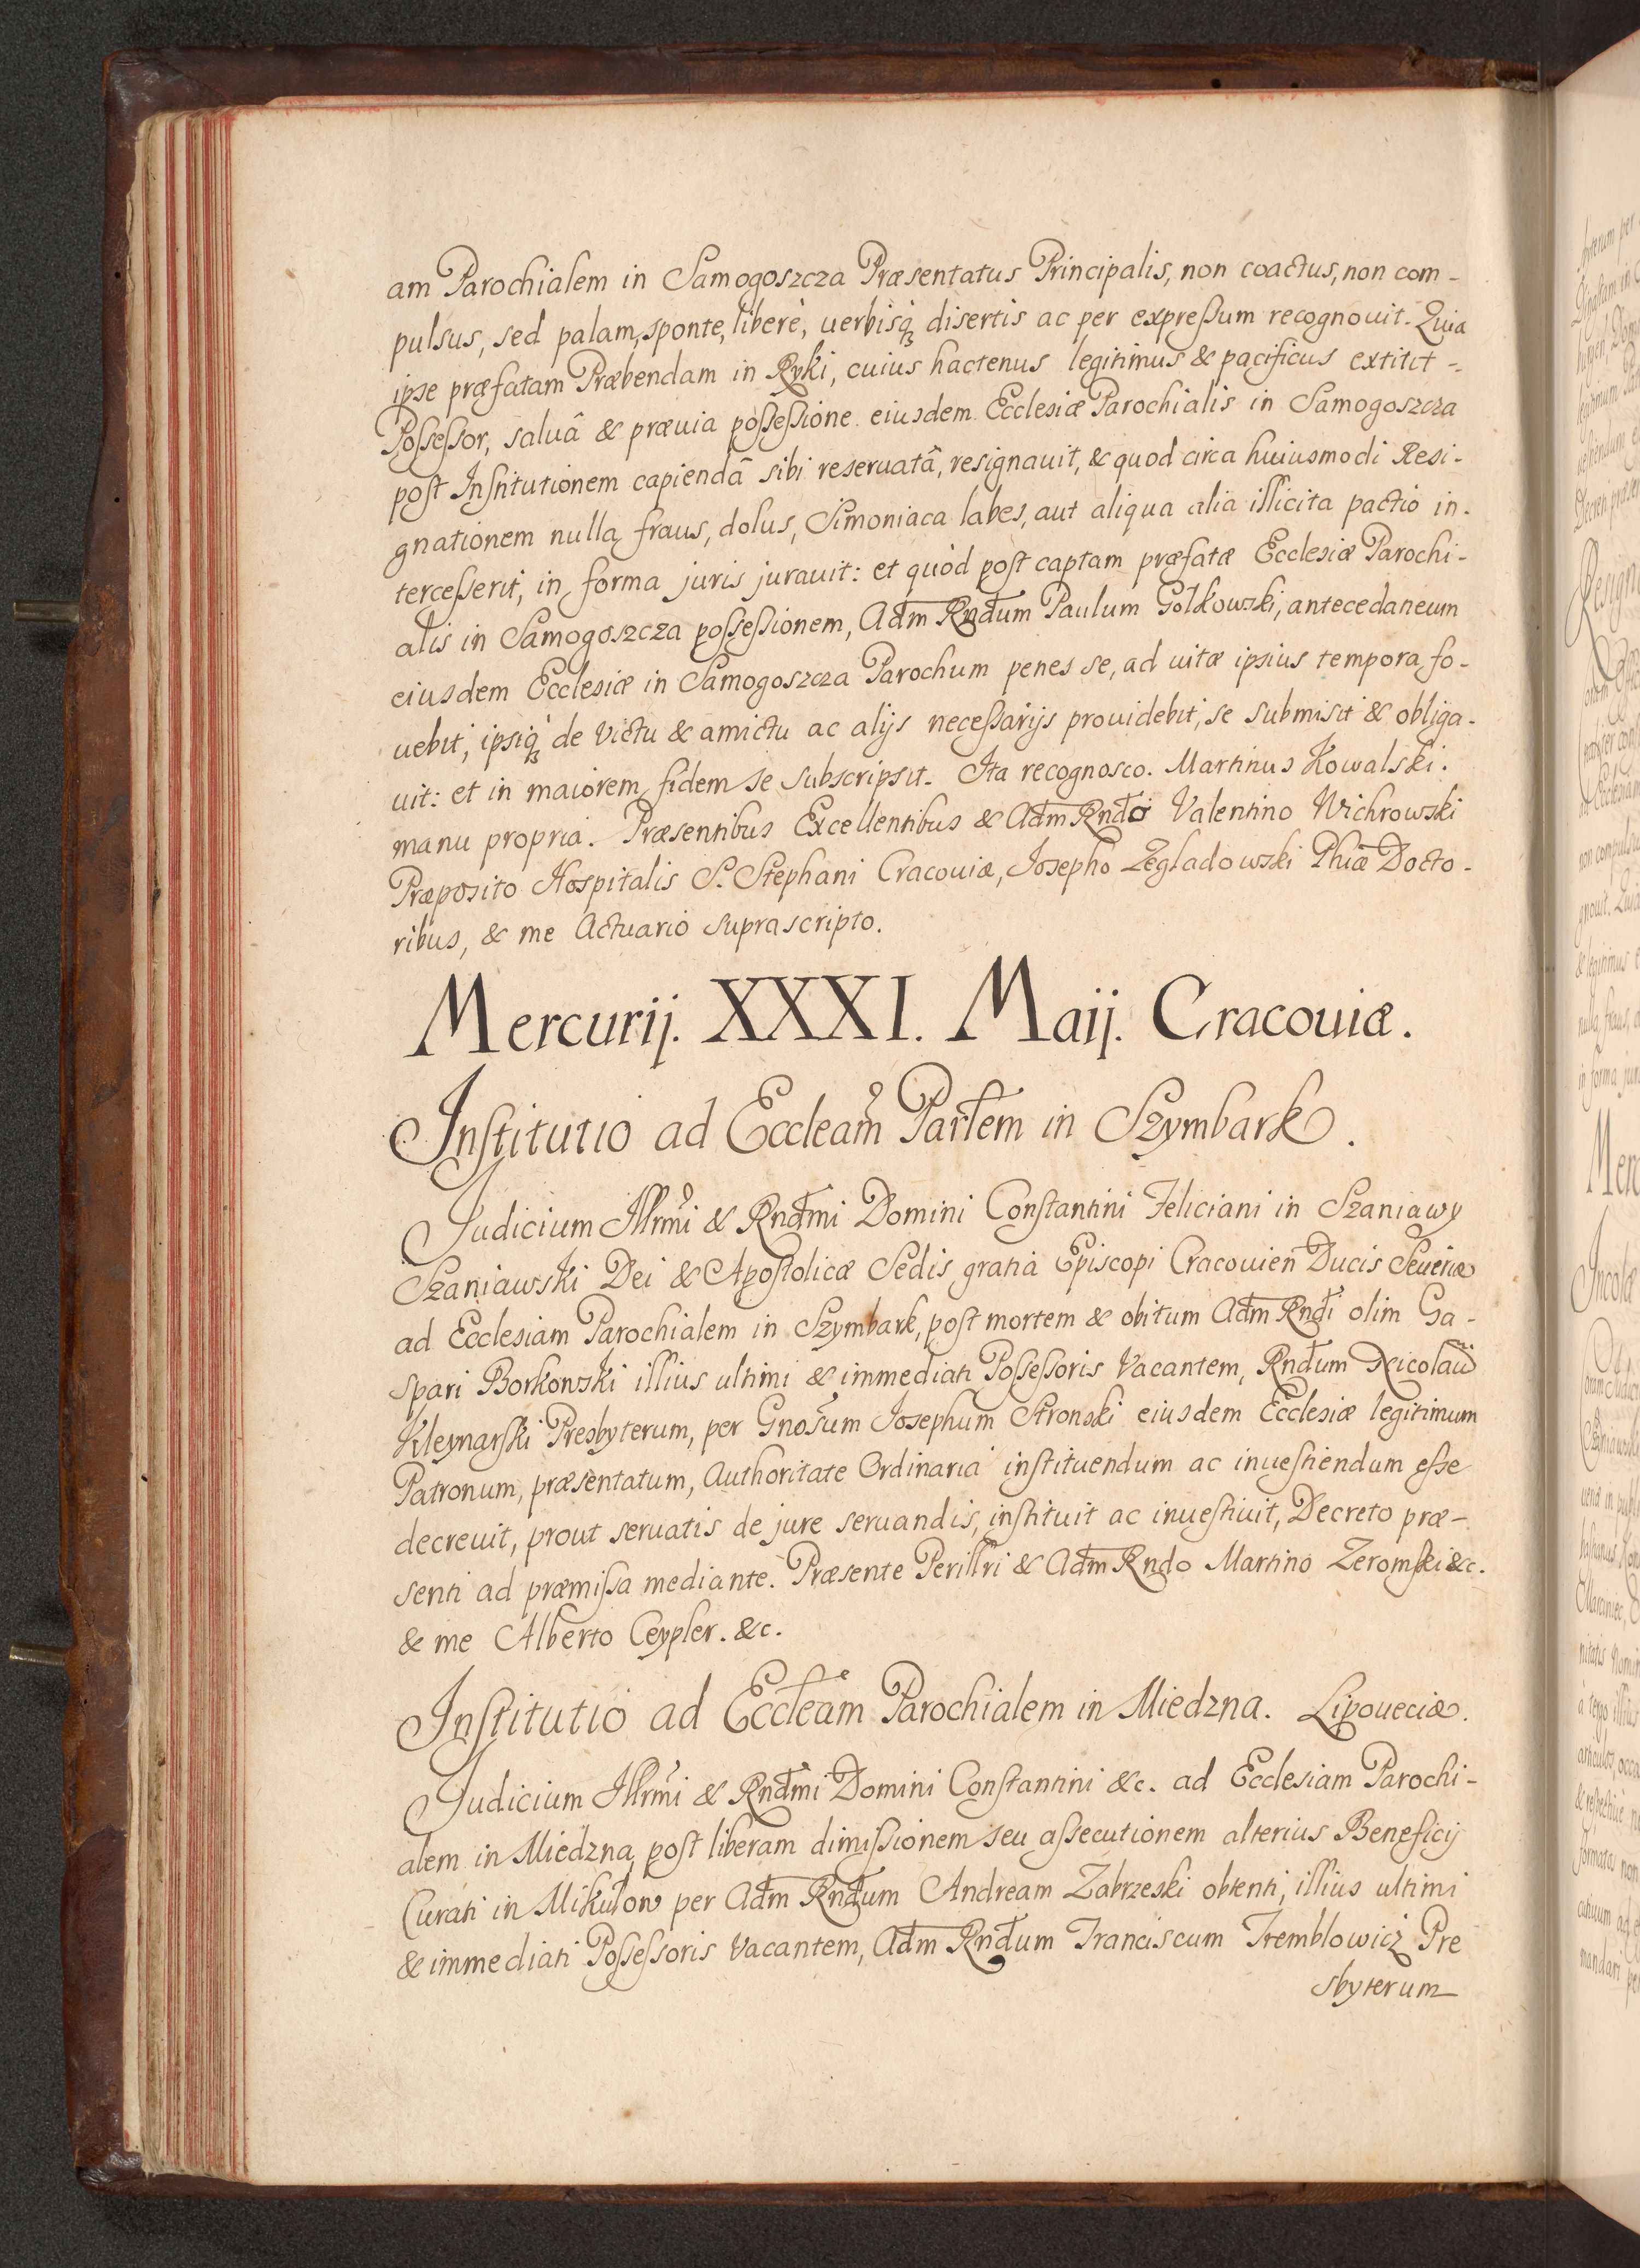 am Parochialem in Samogoszcza Præsentatus Principalis, non coactus, non com-
pulsus, sed palam, sponte, liberè, uerbisq3 disertis ac per expreßum recognouit. Quia
ipse præfatam Præbendam in Ryki, cuius hactenus legitimus & pacificus extitit -
Poßeßor, saluâ & præuia poßeßione eiusdem Ecclesiæ Parochialis in Samogoszcza
post Institutionem capiendâ sibi reseruatâ, resignauit, & quod circa huiusmodi Resi-
gnationem nulla fraus, dolus, Simoniaca labes, aut aliqua alia illicita pactio in-
terceßerit, in forma juris jurauit: et quòd post captam præfatæ Ecclesiæ Parochi-
alis in Samogoszcza poßeßionem, Adm Rndum Paulum Golkowski, antecedaneum
eiusdem Ecclesiæ in Samogoszcza Parochum penes se, ad uitæ ipsius tempora fo-
uebit, ipsiq3 de victu & amictu ac alijs neceßarijs prouidebit, se submisit & obliga-
uit: et in maiorem fidem se subscripsit. Ita recognosco. Martinus Kowalski.
manu propria. Præsentibus Excellentibus & Adm Rndis Valentino Wichrowski
Præposito Hospitalis S. Stephani Cracouiæ, Josepho Zegladowski Phiæ Docto-
ribus, & me Actuario suprascripto.
Mercurij. XXXI. Maij. Cracouiæ.
Institutio ad Eccleam Parlem in Szymbark.
Judicium Illrmi & Rndmi Domini Constantini Feliciani in Szaniawy
Szaniawski Dei & Apostolicæ Sedis gratia Episcopi Cracouien Ducis Seueriæ
ad Ecclesiam Parochialem in Szymbark, post mortem & obitum Adm Rndi olim Ga-
spari Borkowski illius ultimi & immediati Poßeßoris Vacantem, Rndum Nicolaū
Kleynarski Presbyterum, per Gnosum Josephum Stronski eiusdem Ecclesiæ legitimum
Patronum, præsentatum, Authoritate Ordinaria instituendum ac inuestiendum eße
decreuit, prout seruatis de jure seruandis, instituit ac inuestiuit, Decreto præ-
senti ad præmißa mediante. Præsente Perillri & Adm Rndo Martino Zeromski &c.
& me Alberto Ceypler. &c.
Institutio ad Eccleam Parochialem in Miedzna. Lipoueciæ.
Judicium Illrmi & Rndmi Domini Constantini &c. ad Ecclesiam Parochi-
alem in Miedzna, post liberam dimißionem seu aßecutionem alterius Beneficij
Curati in Mikułow per Adm Rndum Andream Zabrzeski obtenti, illius ultimi
& immediati Poßeßoris Vacantem, Adm Rndum Franciscum Tremblowicz Pre
sbyterum